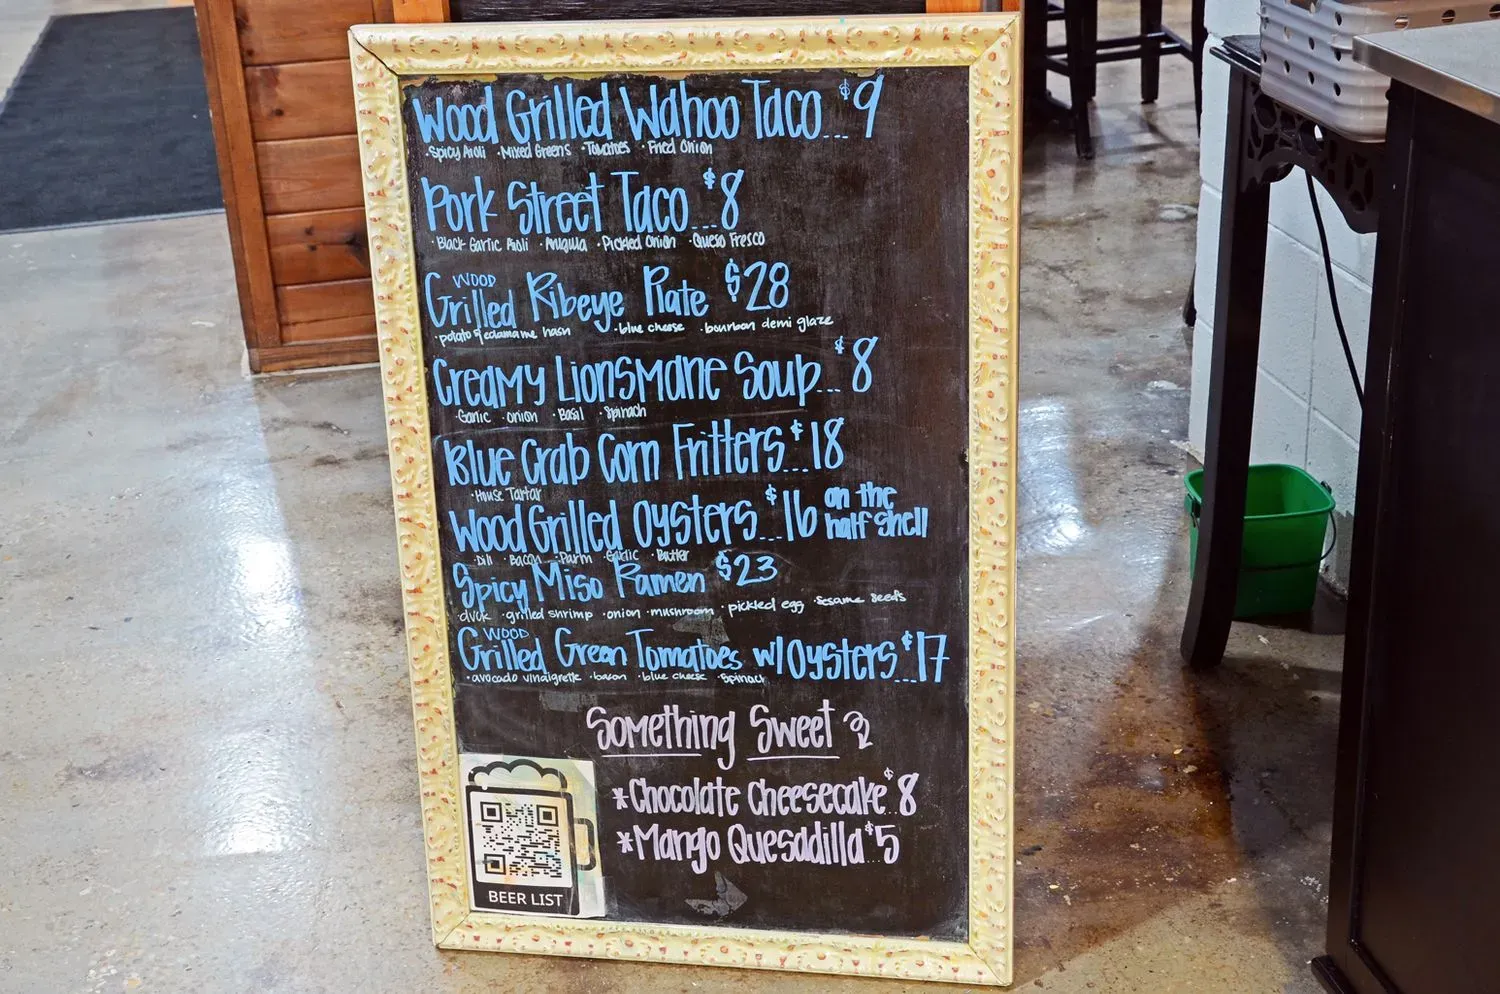 Wood Grilled Wahoo Taco...$9
·Spicy Aioli ·Mixed Greens ·Tomatoes ·Fried Onion
Pork Street Taco...$8
·Black Garlic Aioli ·Arugula ·Pickled Onion ·Queso Fresco
Wood
Grilled Ribeye Plate $28
·potato & edamame hash ·blue cheese ·bourbon demi glaze
Creamy Lionsmane Soup...$8
·Garlic ·onion ·Basil ·Spinach
Blue Crab Corn Fritters...$18
·House Tartar
Wood Grilled Oysters...$16 on the
half shell
·Dill ·Bacon ·Parm ·Garlic ·Butter
Spicy Miso Ramen $23
·duck ·grilled shrimp ·onion ·mushroom ·pickled egg ·Sesame Seeds
Wood
Grilled Green Tomatoes w/Oysters...$17
·avocado vinaigrette ·bacon ·blue cheese ·Spinach
Something Sweet
*Chocolate Cheesecake $8
*Mango Quesadilla..$5
BEER LIST